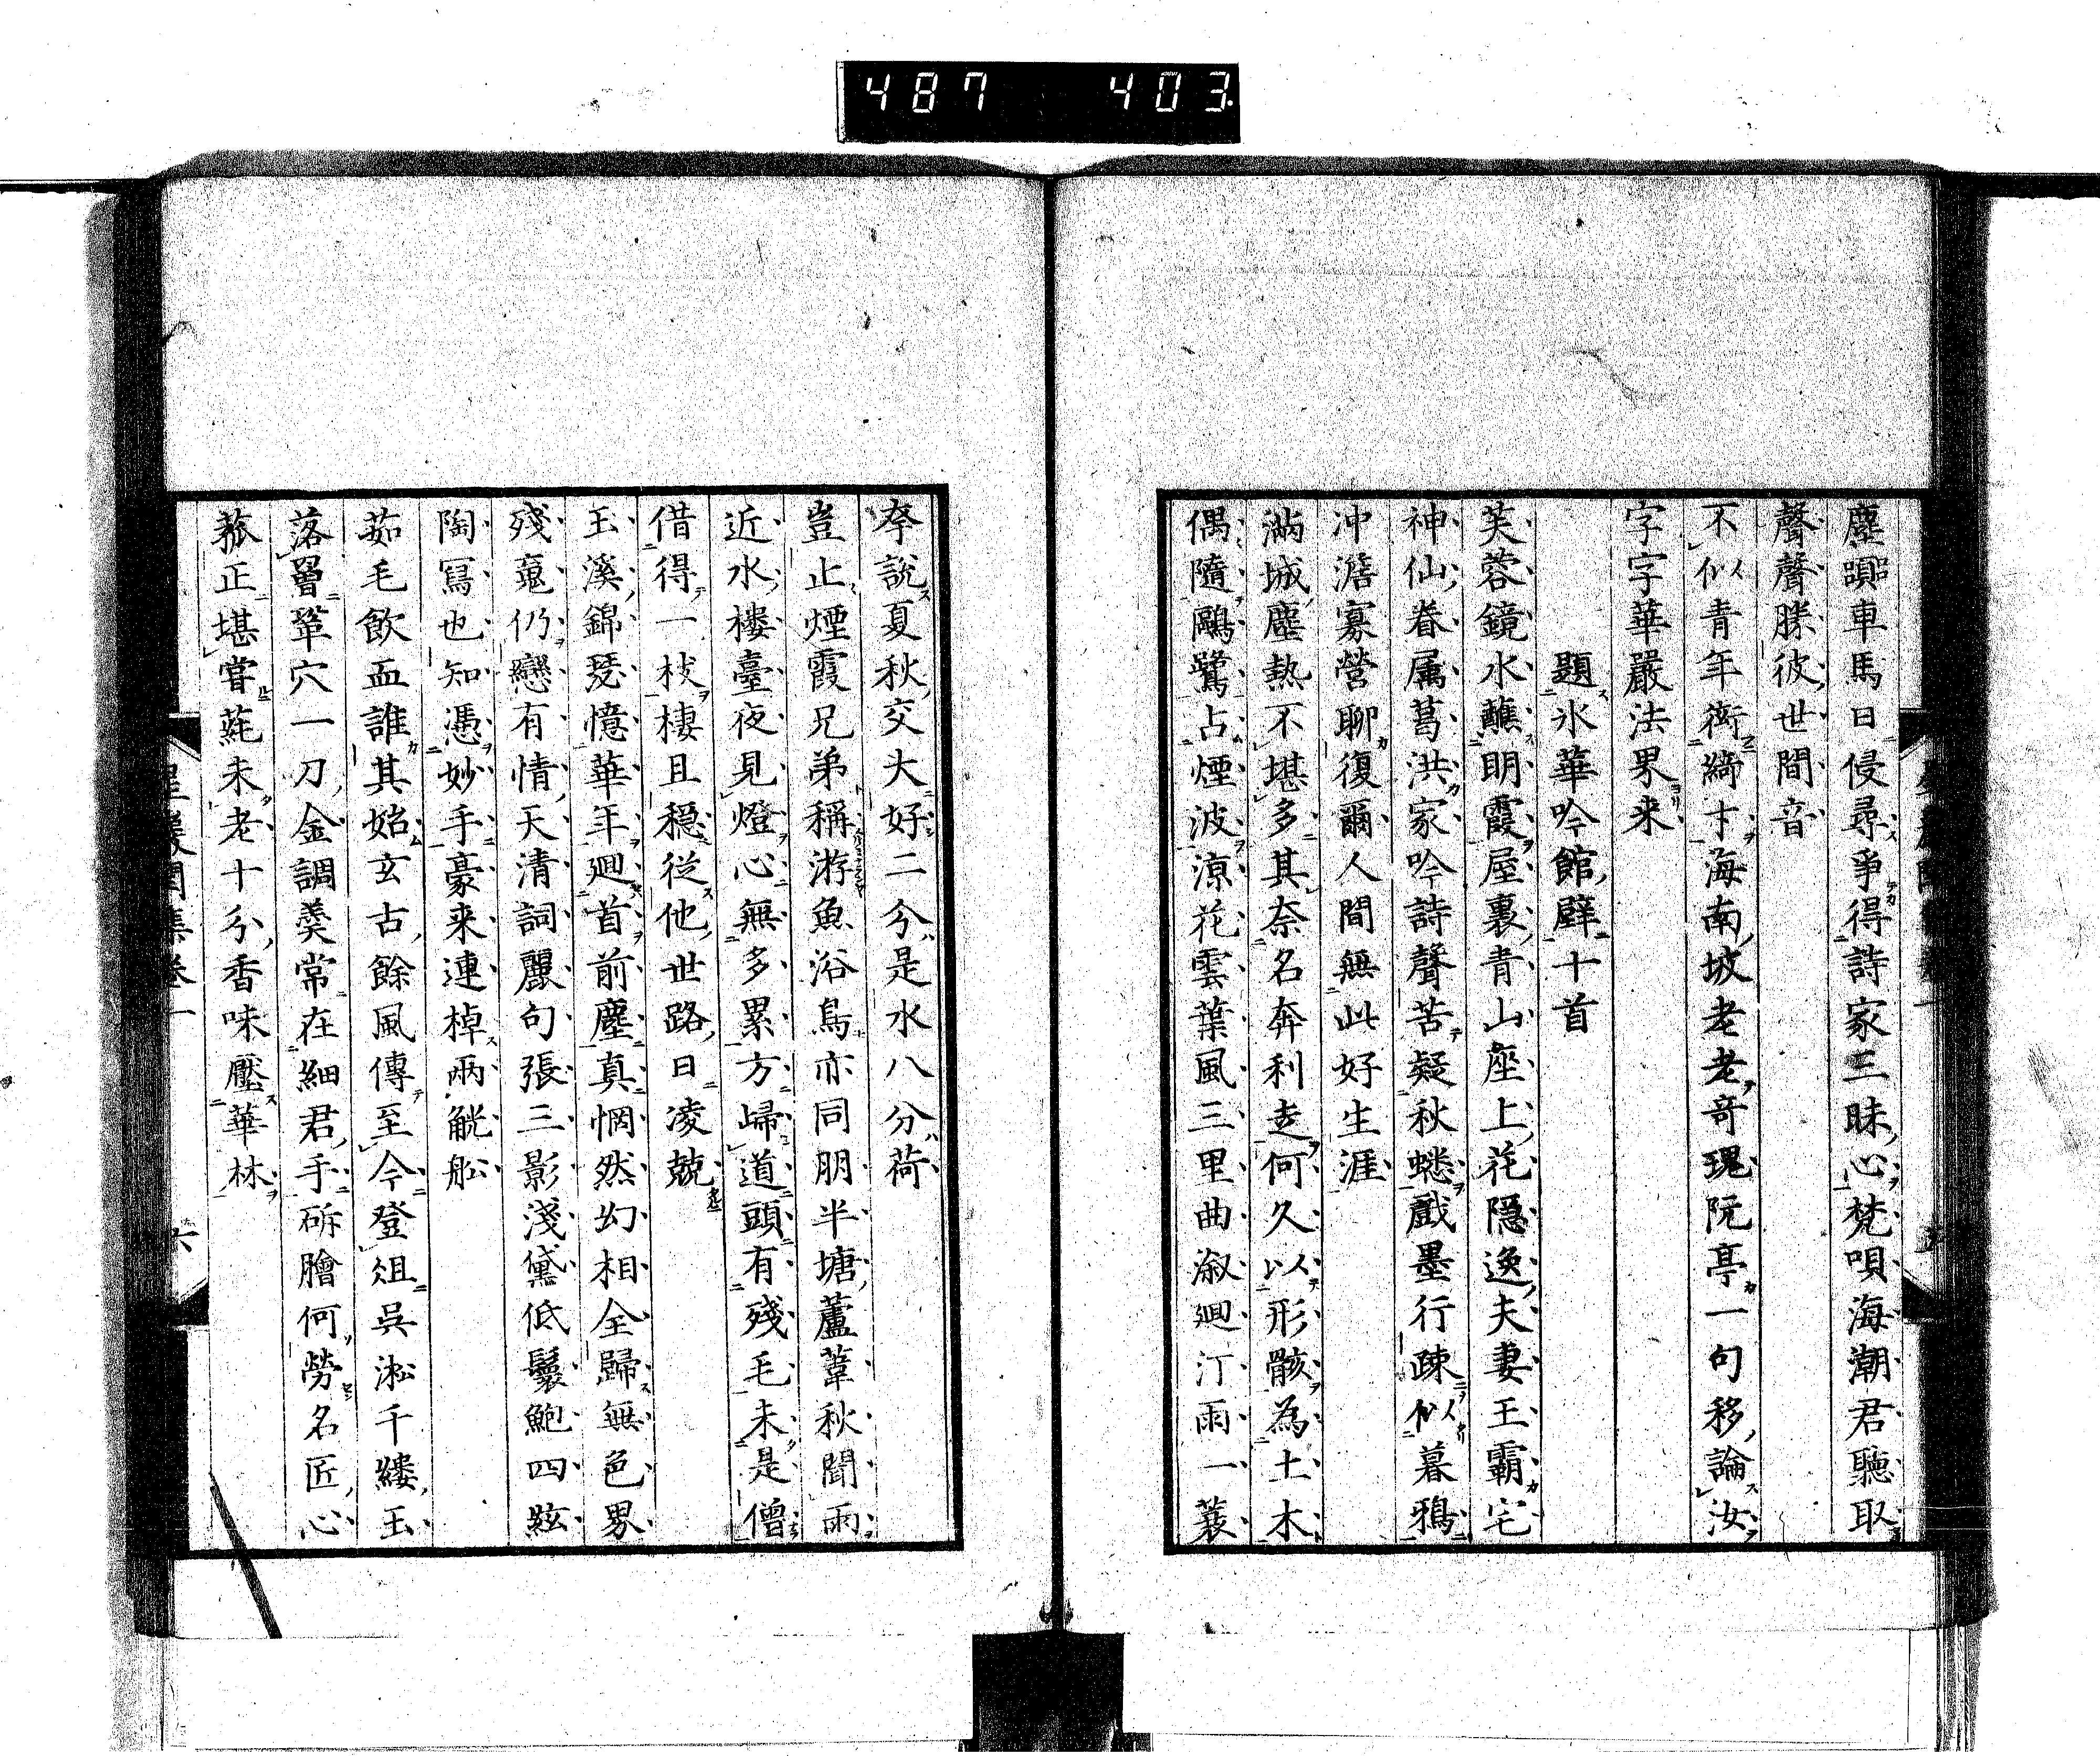 487 403
塵躢車馬日侵尋爭得詩家三昧心梵唄海潮君聽取
聲聲勝彼世間音
不似青年衒綺才海南坡老老奇瑰阮亭一句移論汝
字字華嚴法界来
題氷華吟館壁十首
芙蓉鏡水蘸明霞屋裏青山座上花隱逸夫妻王霸宅
神仙眷属葛洪家吟詩聲苦疑秋蟋戲墨行疎似暮鴉
冲澹寡營聊復爾人間無此好生涯
滿城塵熱不堪多其奈名奔利走何久以形骸為土木
偶隨鷗鷺占煙波涼花雲葉風三里曲溆廻汀雨一蓑
拏說夏秋交大好二分是水八分荷
豈止煙霞兄弟稱游魚浴鳥亦同朋半塘蘆葦秋聞雨
近水樓臺夜見燈心無多累方歸道頭有殘毛未是僧
借得一枝棲且穩從他世路日凌兢
玉溪錦瑟憶華年廻首前塵真惘然幻相全歸無色界
殘魂仍戀有情天清詞麗句張三影淺黛低鬟鮑四絃
陶寫也知憑妙手豪来連棹兩觥舩
茹毛飲血誰其始玄古餘風傳至今登俎呉淞千縷玉
落罾鞏穴一刀金調羹常在細君手斫膾何勞名匠心
菰正堪嘗蒓未老十分香味壓華林
星巖閏集卷一
六